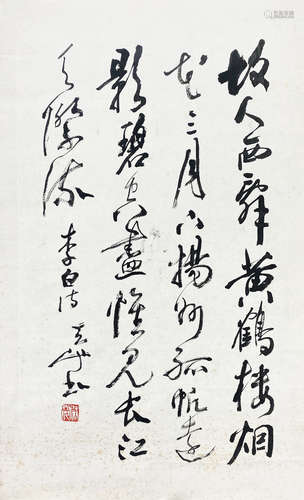 故人西辞黄鶴楼烟
花三月下揚州孤帆遠
影碧空盡惟见长江
天際流
李白诗